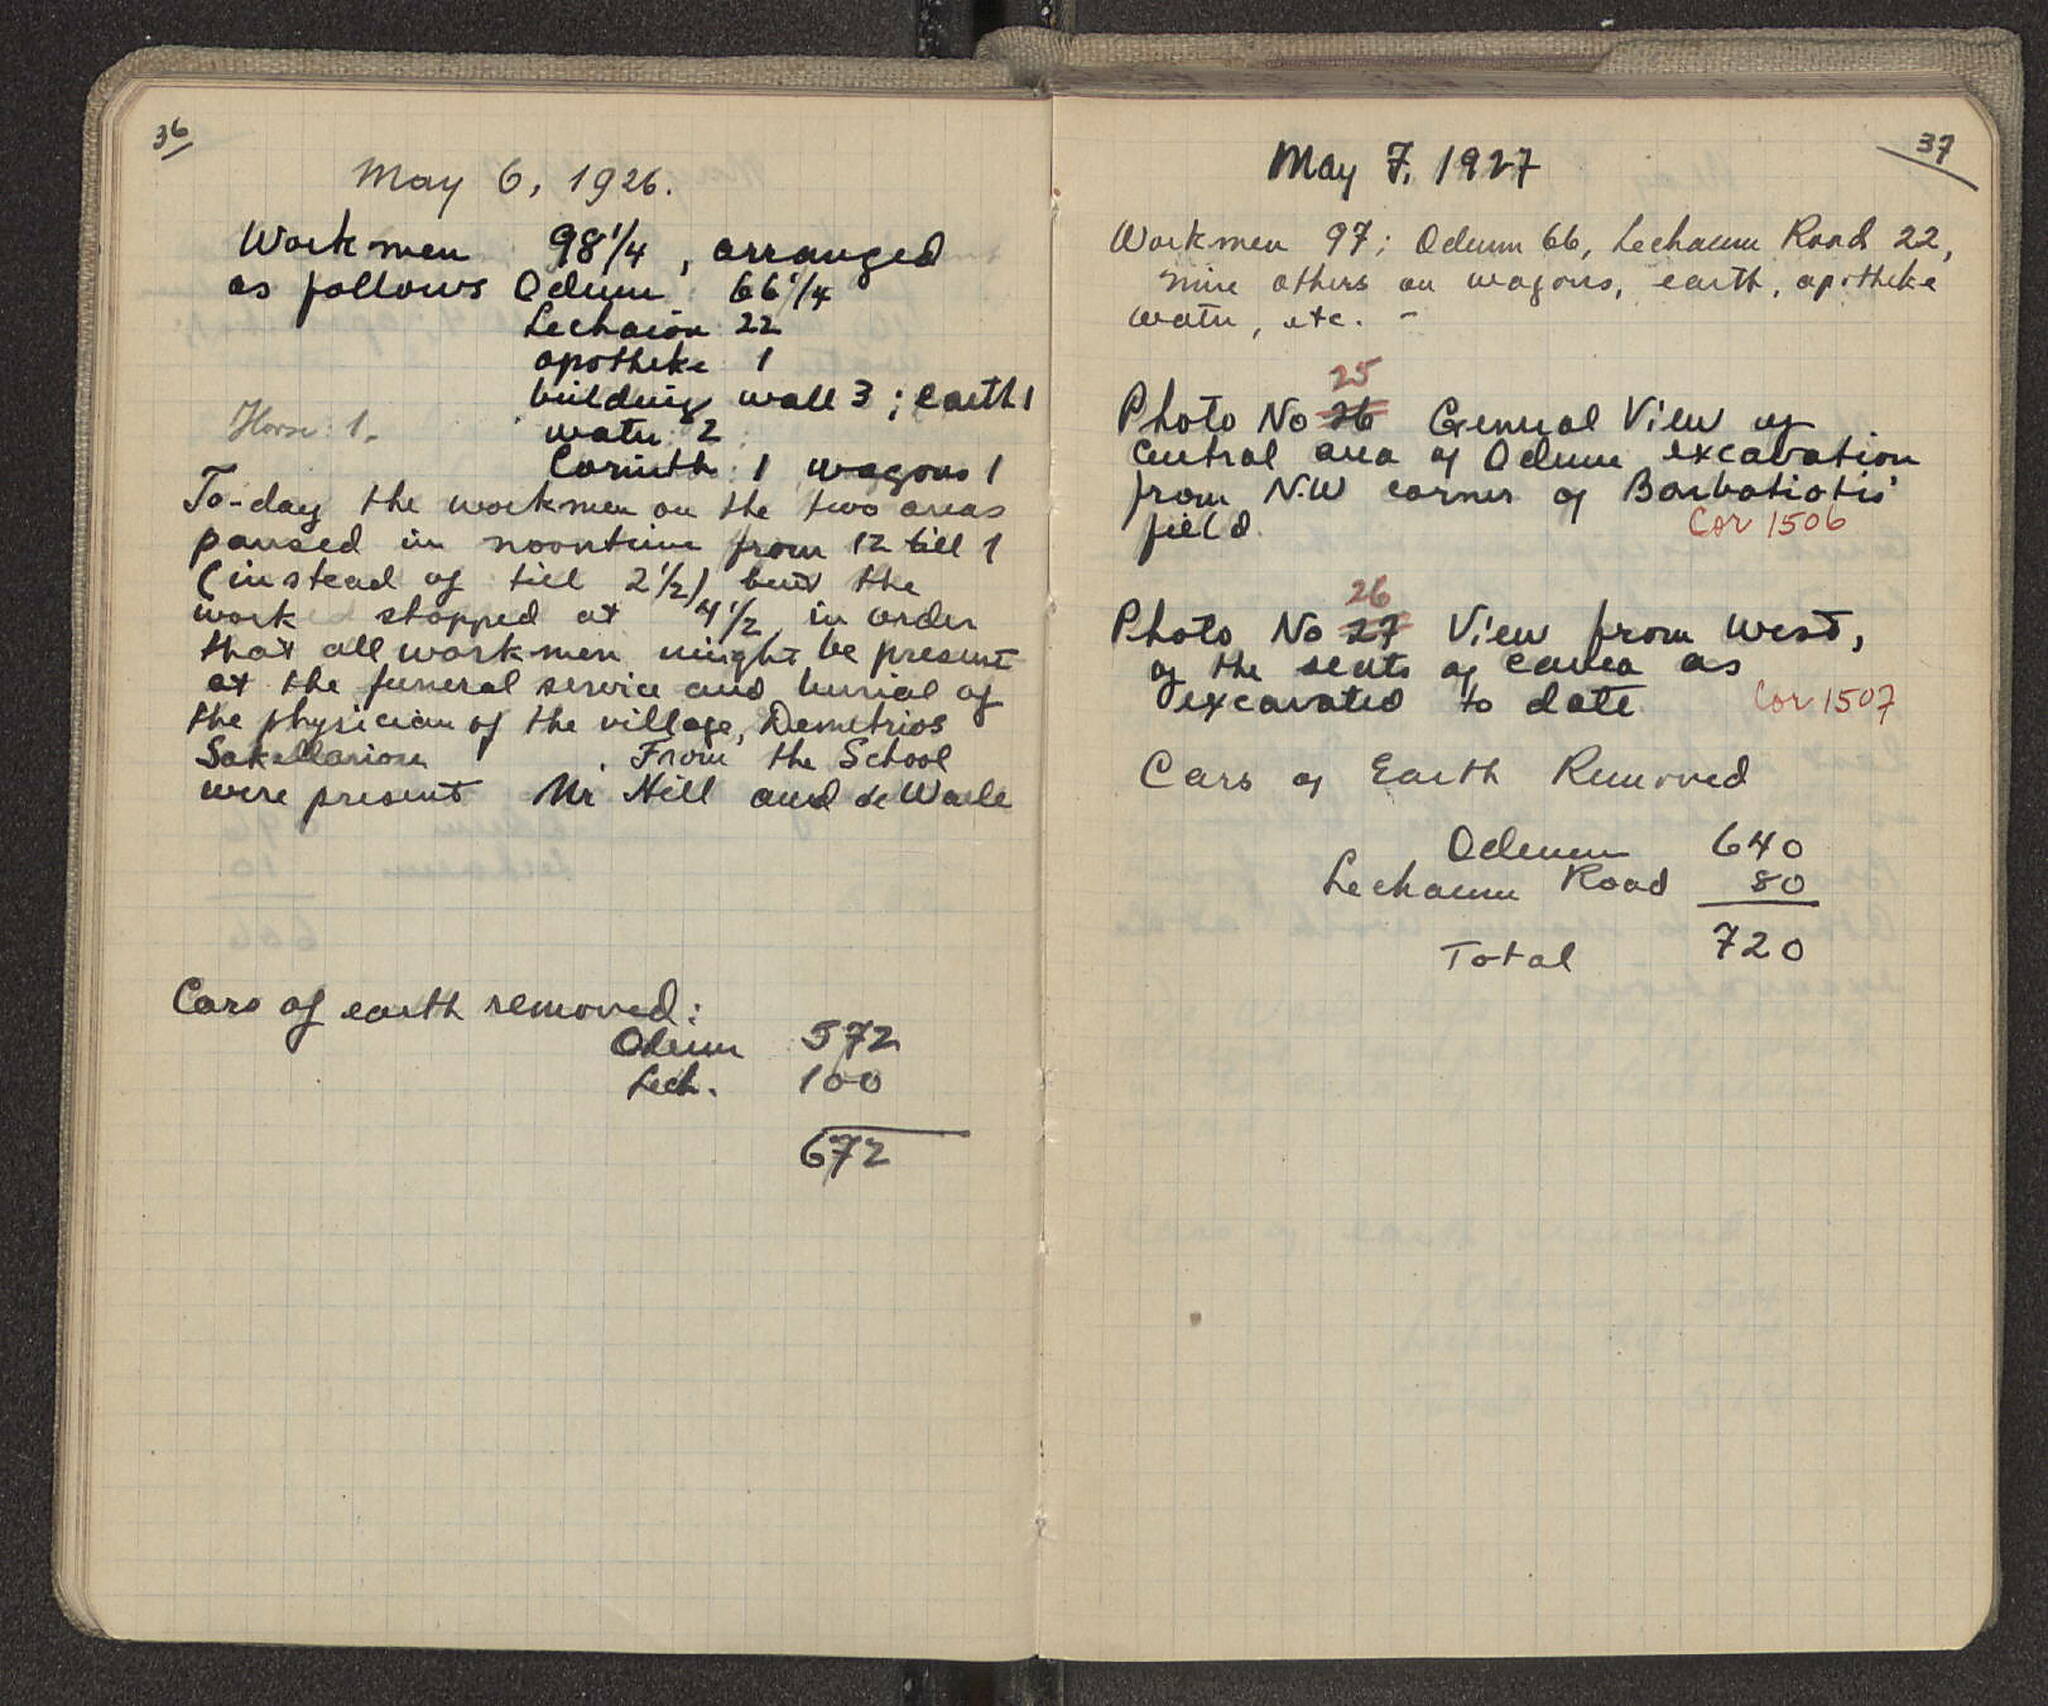 36
May 6, 1926.
Workmen 98 1/4, arranged
as follows Odeum 66 1/4
Lechaion 22
apotheke 1
building wall 3; earth 1
Horse: 1.
water: 2
Corinth: 1 wagons 1
To-day the workmen on the two areas
paused in noontime from 12 till 1
(instead of till 2 1/2) but the
work stopped at 4 1/2 in order
that all workmen might be present
at the funeral service and burial of
the physician of the village, Demetrios
Sakellariou. From the School
were present Mr Hill and de Waele
Cars of earth removed:
Odeum 572
Lech. 100
672
37
May 7, 1927
Workmen 97; Odeum 66, Lechaeum Road 22,
nine others on wagons, earth, apotheke
water, etc. -
25
Photo No 26 General View of
central area of Odeum excavation
from N.W corner of Barbatiotis'
field.
Cor 1506
26
Photo No 27 View from West,
of the seats of cavea as
excavated to date
Cor 1507
Cars of Earth Removed
Odeum 640
Lechaeum Road 80
Total 720